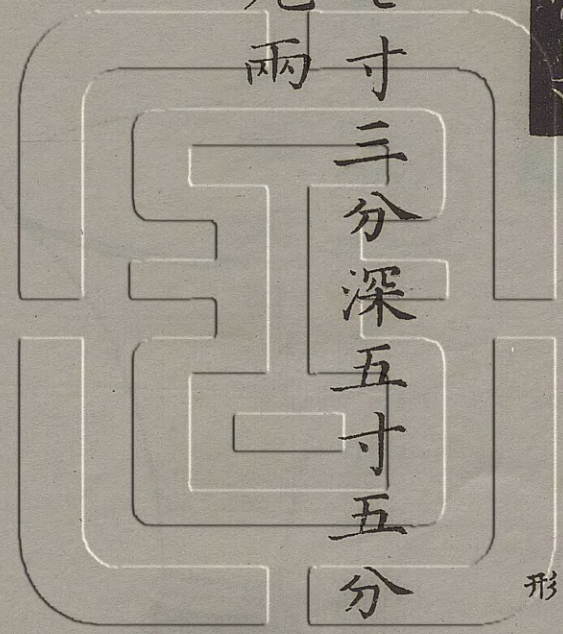 形
寸三分深五寸五分
兩